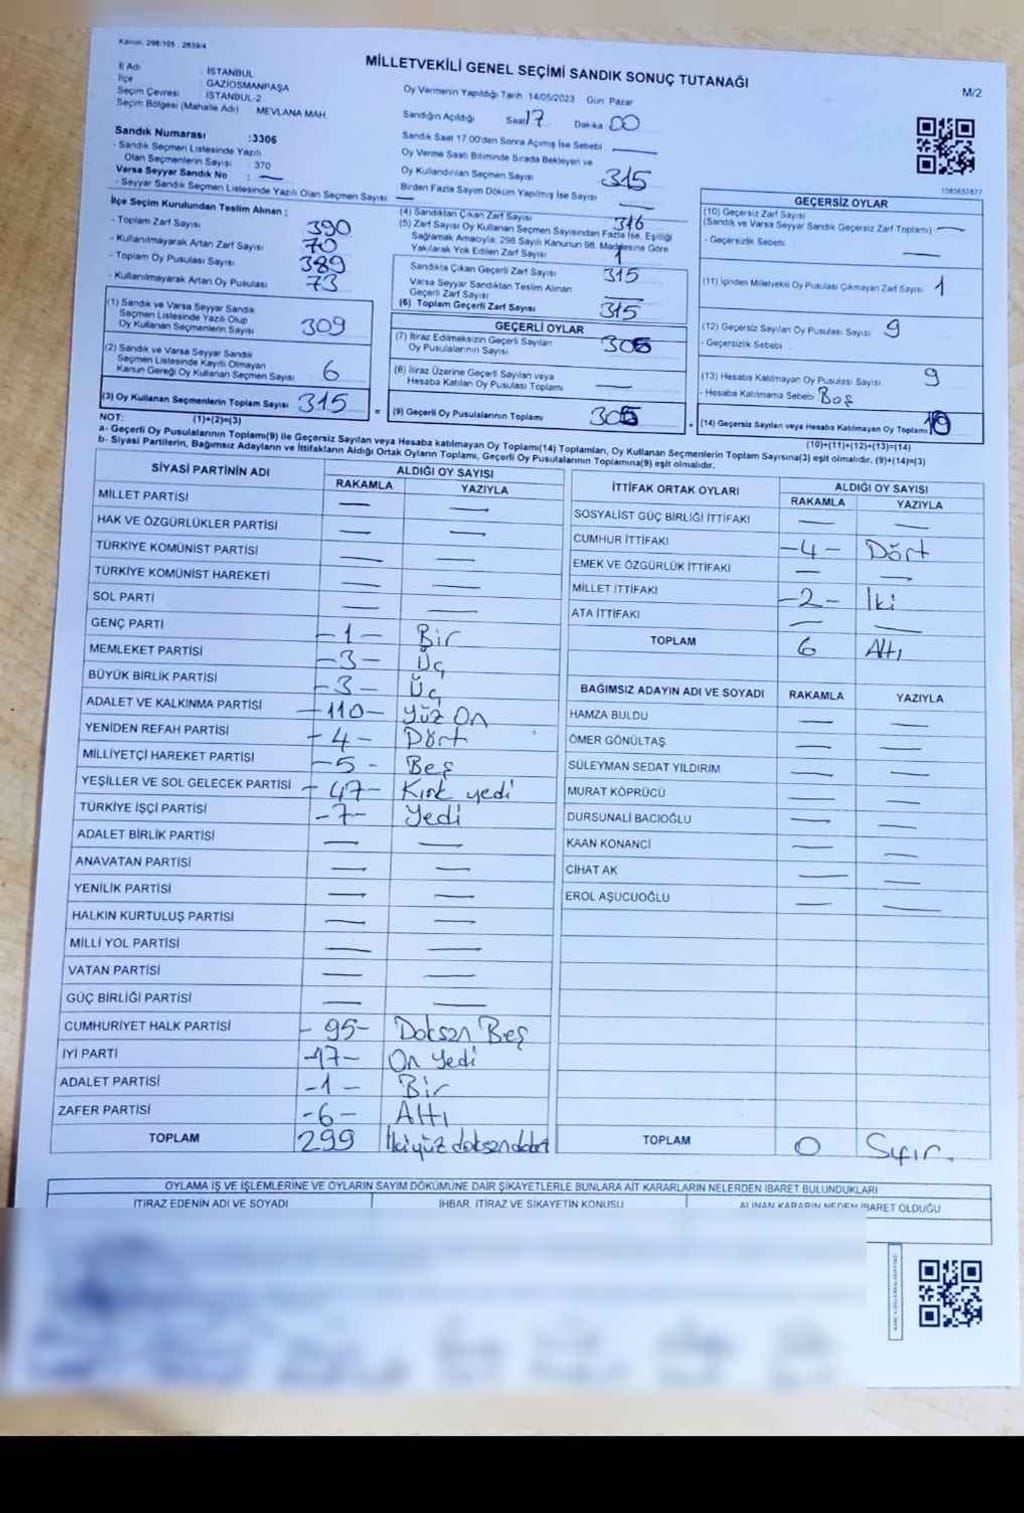 Kanun: 298/105 , 2839/4
MİLLETVEKİLİ GENEL SEÇİMİ SANDIK SONUÇ TUTANAĞI
M/2
İl Adı : İSTANBUL
İlçe : GAZİOSMANPAŞA
Seçim Çevresi : İSTANBUL-2
Seçim Bölgesi (Mahalle Adı) : MEVLANA MAH.
Oy Vermenin Yapıldığı Tarih :14/05/2023 Gün: Pazar
Sandığın Açıldığı Saat 17 Dakika 00
Sandık Saat 17.00'den Sonra Açımış İse Sebebi —
Oy Verme Saati Bitiminde Sırada Bekleyen ve
Oy Kullandırılan Seçmen Sayısı 315
Birden Fazla Sayım Döküm Yapılmış İse Sayısı —
Sandık Numarası :3306
- Sandık Seçmen Listesinde Yazılı
Olan Seçmenlerin Sayısı : 370
Varsa Seyyar Sandık No : —
- Seyyar Sandık Seçmen Listesinde Yazılı Olan Seçmen Sayısı —
İlçe Seçim Kurulundan Teslim Alınan :
- Toplam Zarf Sayısı 390
- Kullanılmayarak Artan Zarf Sayısı 70
- Toplam Oy Pusulası Sayısı 389
- Kullanılmayarak Artan Oy Pusulası 73
(1) Sandık ve Varsa Seyyar Sandık
Seçmen Listesinde Yazılı Olup
Oy Kullanan Seçmenlerin Sayısı 309
(2) Sandık ve Varsa Seyyar Sandık
Seçmen Listesinde Kayıtlı Olmayan
Kanun Gereği Oy Kullanan Seçmen Sayısı 6
(3) Oy Kullanan Seçmenlerin Toplam Sayısı 315
(1)+(2)=(3)
(4) Sandıktan Çıkan Zarf Sayısı 316
(5) Zarf Sayısı Oy Kullanan Seçmen Sayısından Fazla İse, Eşitliği
Sağlamak Amacıyla: 298 Sayılı Kanunun 98. Maddesine Göre
Yakılarak Yok Edilen Zarf Sayısı 1
Sandıkta Çıkan Geçerli Zarf Sayısı 315
Varsa Seyyar Sandıktan Teslim Alınan
Geçerli Zarf Sayısı —
(6) Toplam Geçerli Zarf Sayısı 315
GEÇERLİ OYLAR
(7) İtiraz Edilmeksizin Geçerli Sayılan
Oy Pusulalarının Sayısı 305
(8) İtiraz Üzerine Geçerli Sayılan veya
Hesaba Katılan Oy Pusulası Toplamı —
= (9) Geçerli Oy Pusulalarının Toplamı 305
GEÇERSİZ OYLAR
(10) Geçersiz Zarf Sayısı
(Sandık ve Varsa Seyyar Sandık Geçersiz Zarf Toplamı) —
- Geçersizlik Sebebi —
(11) İçinden Milletvekili Oy Pusulası Çıkmayan Zarf Sayısı 1
(12) Geçersiz Sayılan Oy Pusulası Sayısı 9
- Geçersizlik Sebebi :
(13) Hesaba Katılmayan Oy Pusulası Sayısı 9
- Hesaba Katılmama Sebebi Boş
+ (14) Geçersiz Sayılan veya Hesaba Katılmayan Oy Toplamı 10
(10)+(11)+(12)+(13)=(14)
NOT:
a- Geçerli Oy Pusulalarının Toplamı(9) ile Geçersiz Sayılan veya Hesaba katılmayan Oy Toplamı(14) Toplamları, Oy Kullanan Seçmenlerin Toplam Sayısına(3) eşit olmalıdır. (9)+(14)=(3)
b- Siyasi Partilerin, Bağımsız Adayların ve İttifakların Aldığı Ortak Oyların Toplamı, Geçerli Oy Pusulalarının Toplamına(9) eşit olmalıdır.
SİYASİ PARTİNİN ADI ALDIĞI OY SAYISI
RAKAMLA YAZIYLA
MİLLET PARTİSİ — —
HAK VE ÖZGÜRLÜKLER PARTİSİ — —
TÜRKİYE KOMÜNİST PARTİSİ — —
TÜRKİYE KOMÜNİST HAREKETİ — —
SOL PARTİ — —
GENÇ PARTİ -1- Bir
MEMLEKET PARTİSİ -3- Üç
BÜYÜK BİRLİK PARTİSİ -3- Üç
ADALET VE KALKINMA PARTİSİ -110- Yüz On
YENİDEN REFAH PARTİSİ -4- Dört
MİLLİYETÇİ HAREKET PARTİSİ -5- Beş
YEŞİLLER VE SOL GELECEK PARTİSİ -47- Kırk yedi
TÜRKİYE İŞÇİ PARTİSİ -7- Yedi
ADALET BİRLİK PARTİSİ — —
ANAVATAN PARTİSİ — —
YENİLİK PARTİSİ — —
HALKIN KURTULUŞ PARTİSİ — —
MİLLİ YOL PARTİSİ — —
VATAN PARTİSİ — —
GÜÇ BİRLİĞİ PARTİSİ — —
CUMHURİYET HALK PARTİSİ - 95- Doksan Beş
İYİ PARTİ -17- On Yedi
ADALET PARTİSİ -1- Bir
ZAFER PARTİSİ -6- Altı
TOPLAM 299 İkiyüz
İTTİFAK ORTAK OYLARI ALDIĞI OY SAYISI
RAKAMLA YAZIYLA
SOSYALİST GÜÇ BİRLİĞİ İTTİFAKI — —
CUMHUR İTTİFAKI -4- Dört
EMEK VE ÖZGÜRLÜK İTTİFAKI — —
MİLLET İTTİFAKI -2- İki
ATA İTTİFAKI — —
TOPLAM 6 Altı
BAĞIMSIZ ADAYIN ADI VE SOYADI RAKAMLA YAZIYLA
HAMZA BULDU — —
ÖMER GÖNÜLTAŞ — —
SÜLEYMAN SEDAT YILDIRIM — —
MURAT KÖPRÜCÜ — —
DURSUNALİ BACIOĞLU — —
KAAN KONANCI — —
CİHAT AK — —
EROL AŞUCUOĞLU — —
TOPLAM 0 Sıfır.
OYLAMA İŞ VE İŞLEMLERİNE VE OYLARIN SAYIM DÖKÜMÜNE DAİR ŞİKAYETLERLE BUNLARA AİT KARARLARIN NELERDEN İBARET BULUNDUKLARI
İTİRAZ EDENİN ADI VE SOYADI İHBAR, İTİRAZ VE ŞİKAYETİN KONUSU ALINAN KARARIN NEDEN İBARET OLDUĞU